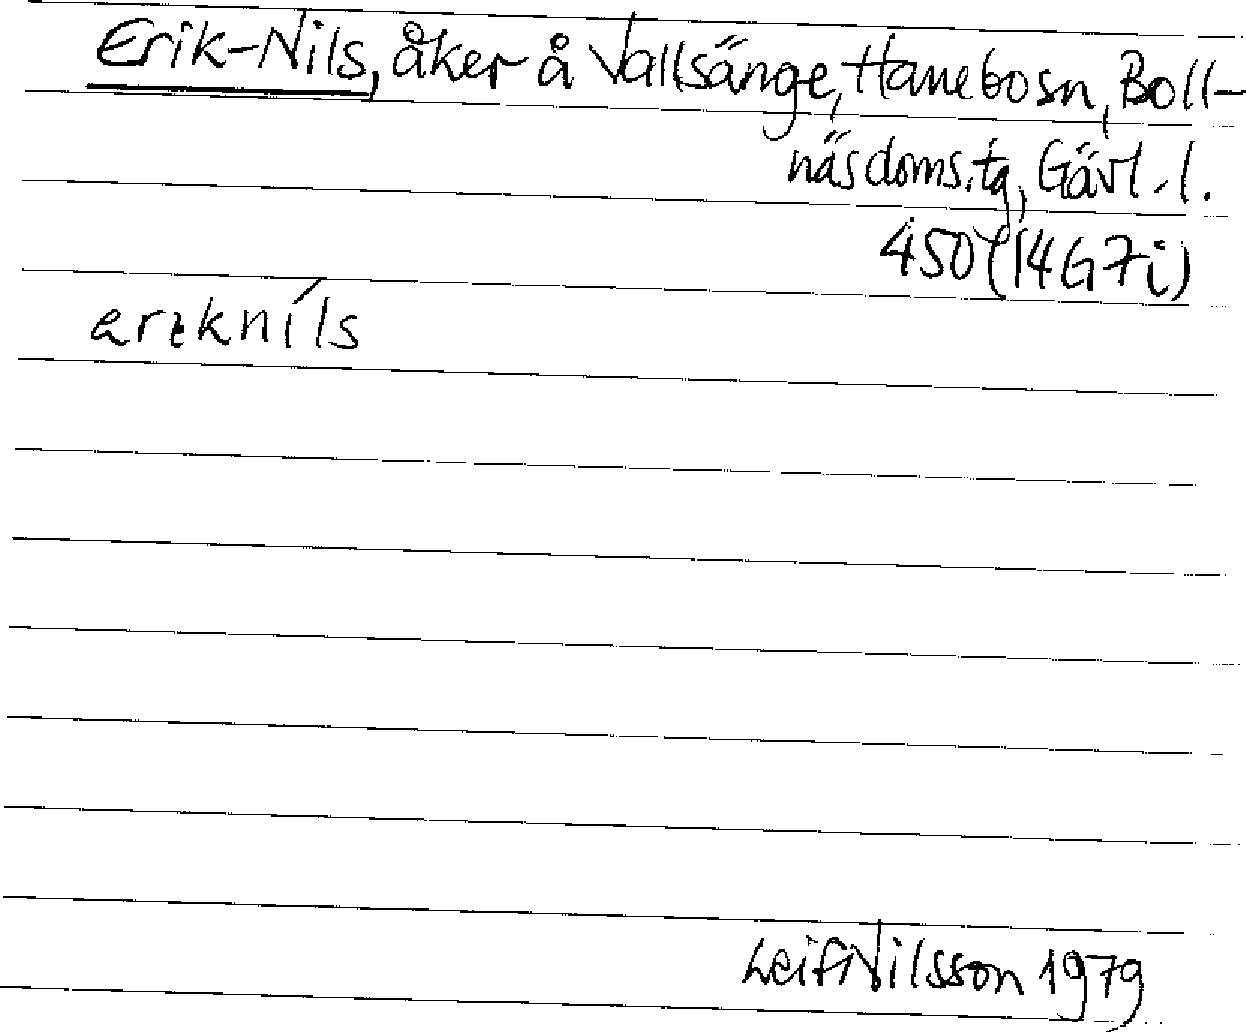 Erik-Nils, åker å Vallsänge, Hanebo sn, Boll-
näs doms.tg, Gävl. l.
450 (14G7i)
erɩkníls
Leif Nilsson 1979